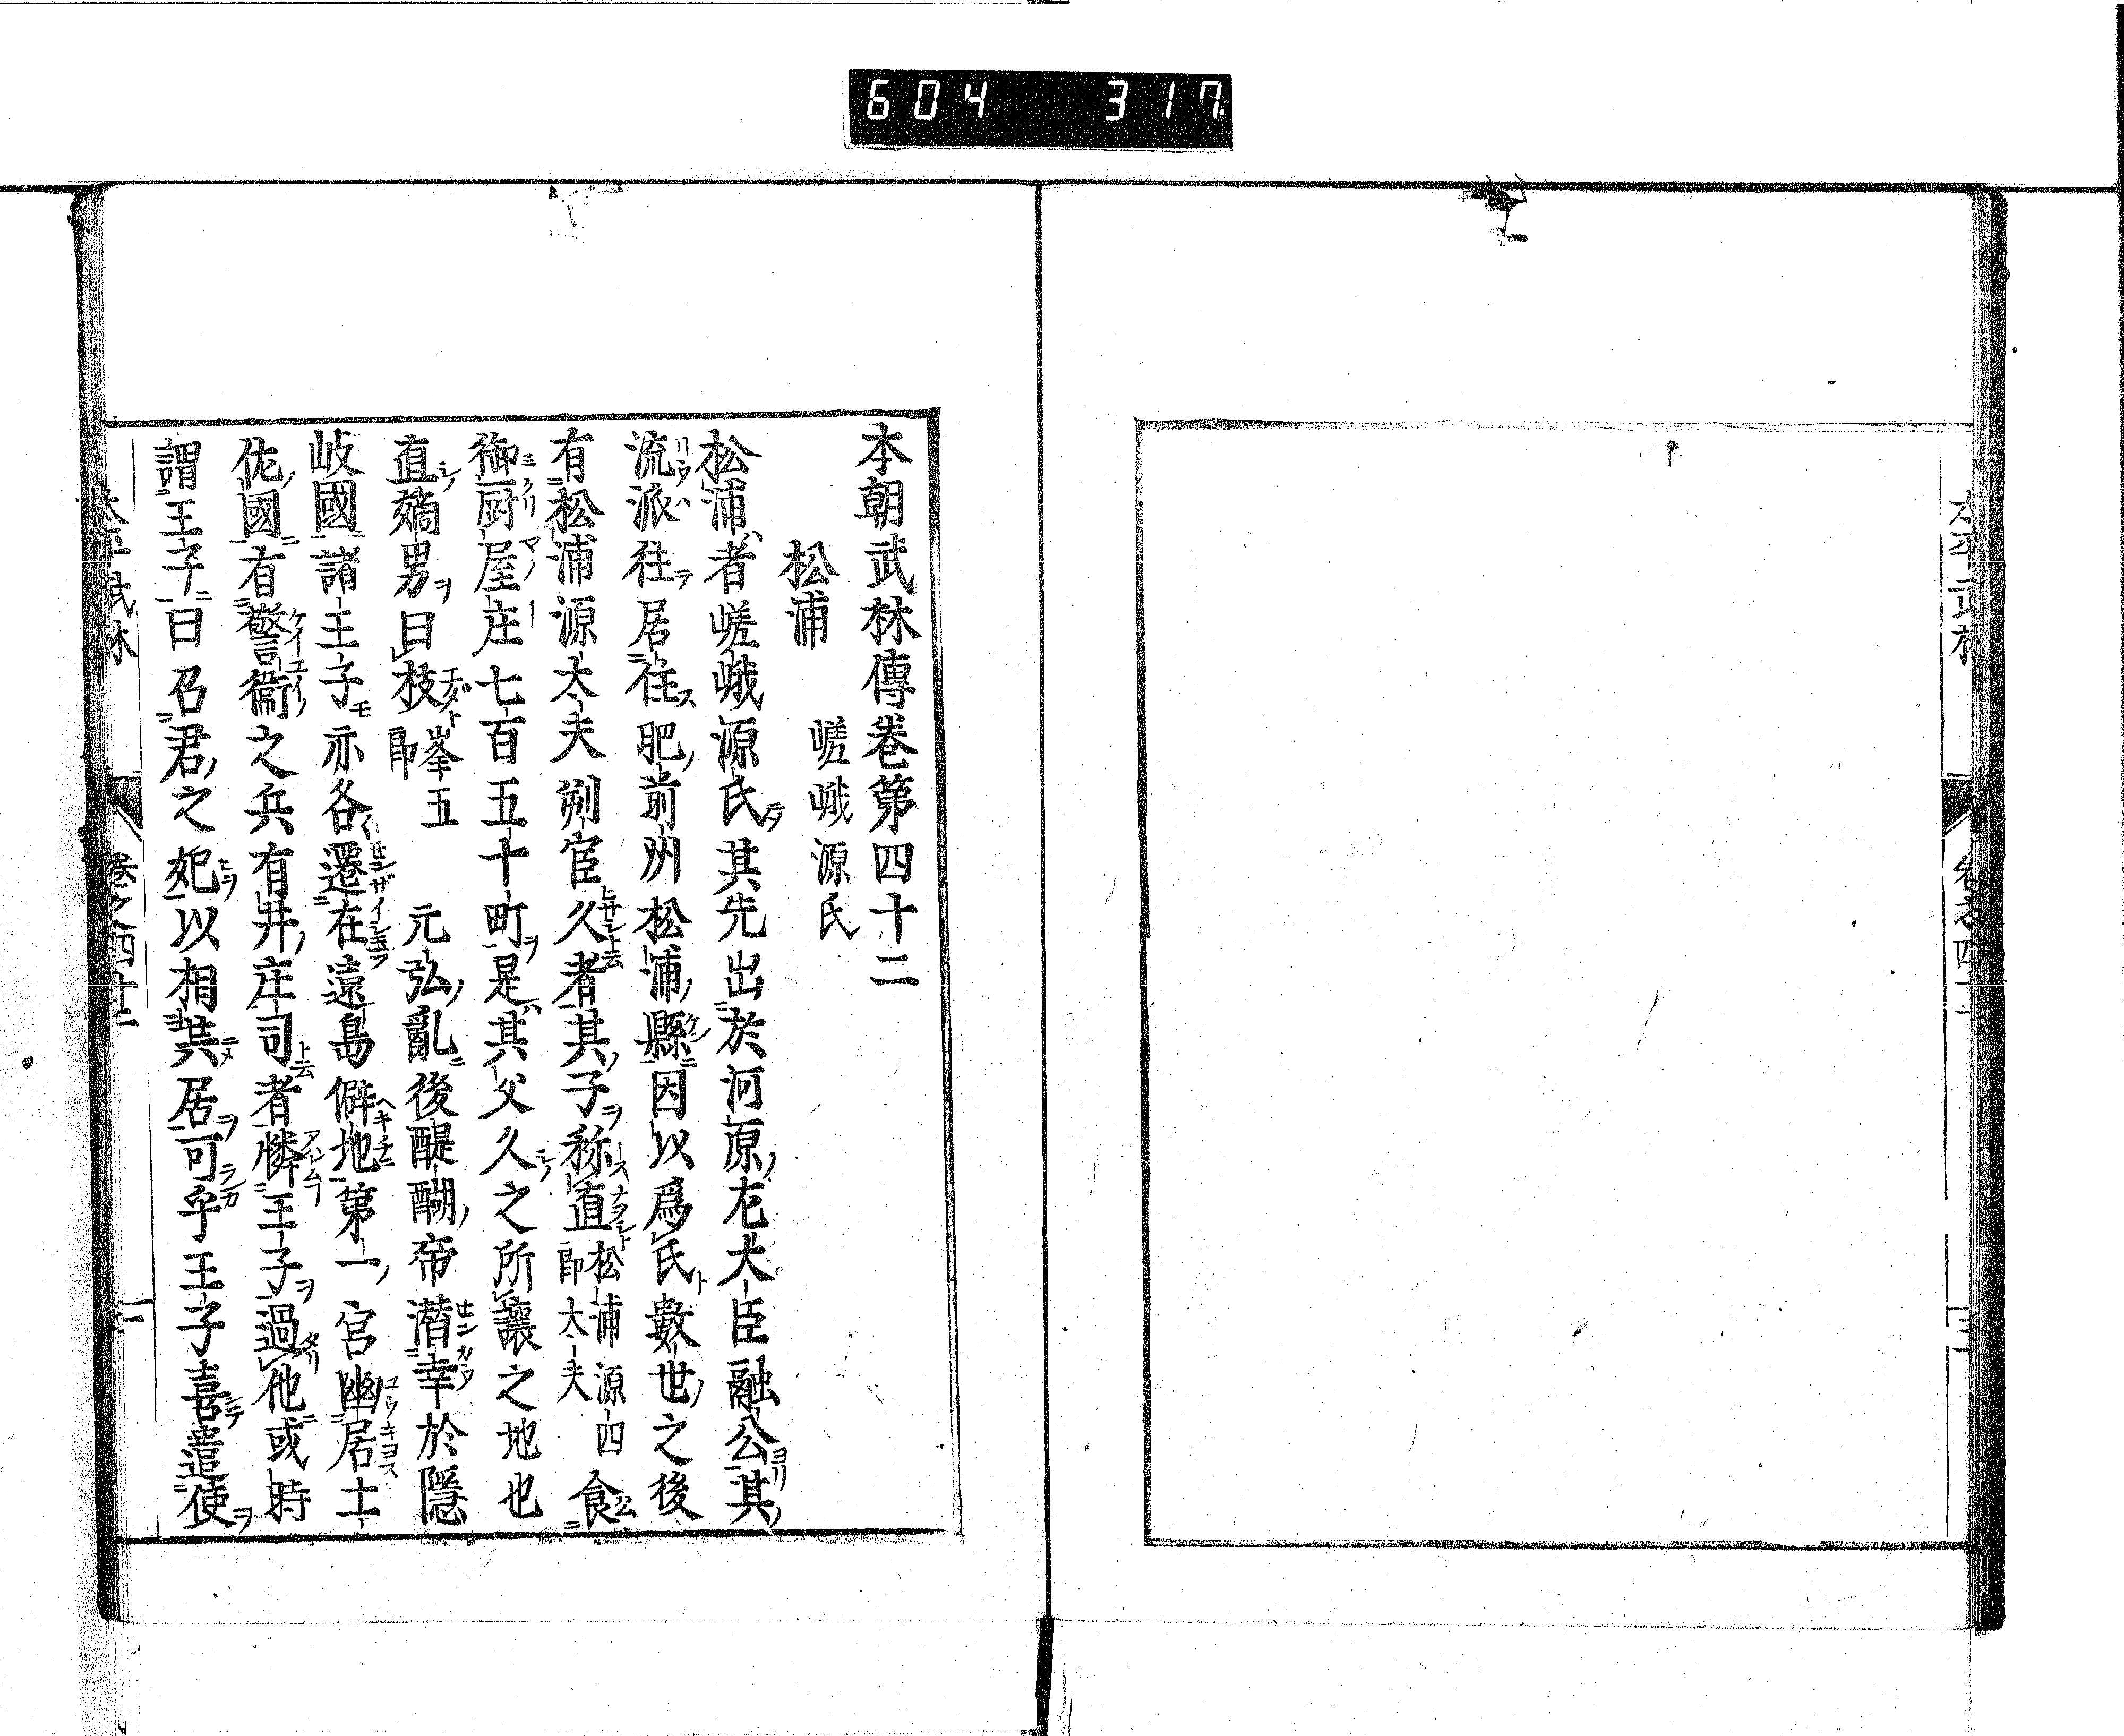 604 317
本朝武林傳卷第四十二
松浦 嵯峨源氏
松浦者嵯峨源氏其先出於河原左大臣融公其
流派往居住肥前州松浦縣因以爲氏數世之後
有松浦源太夫判官久者其子称直松浦源四郎太夫食
御厨屋庄七百五十町是其父久之所讓之地也
直嫡男曰枝峯五郎 元弘亂後醍醐帝潜幸於隱
岐國諸王子亦各遷在遠島僻地第一宮幽居土
佐國有警衞之兵有井庄司者憐王子過他或時
謂王子曰召君之妃以相共居可乎王子喜遣使
卷之四十二